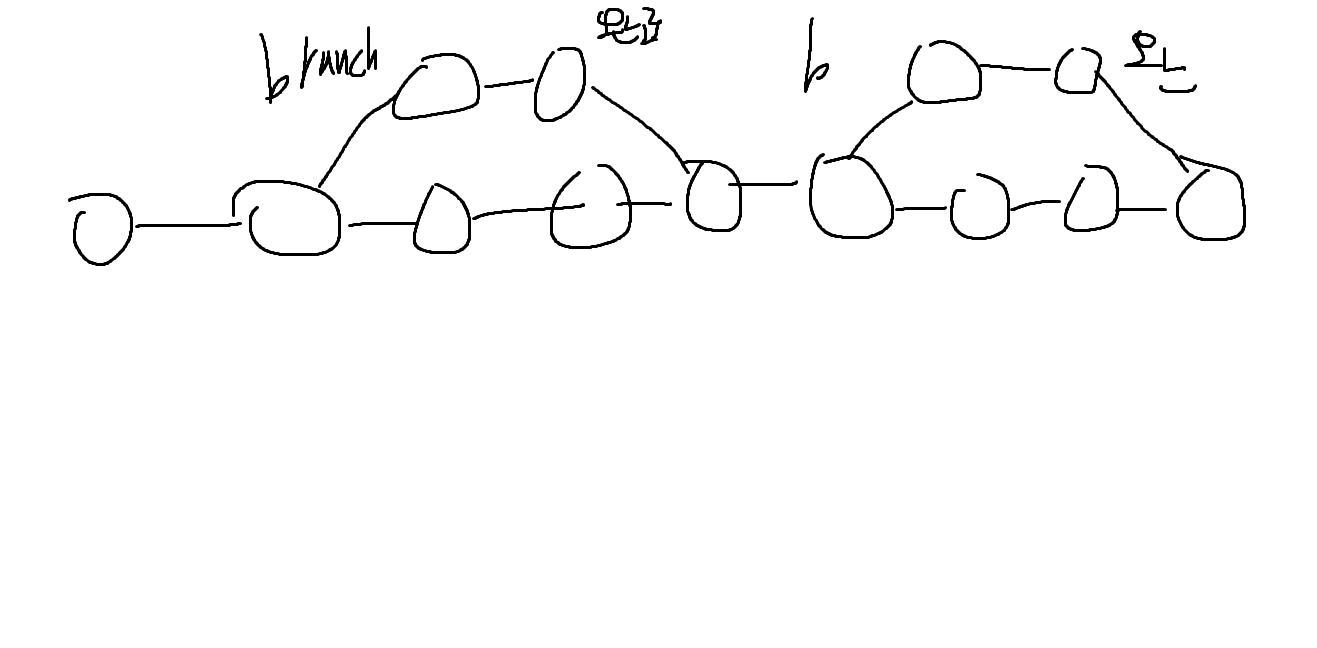 branch
완료
b
완